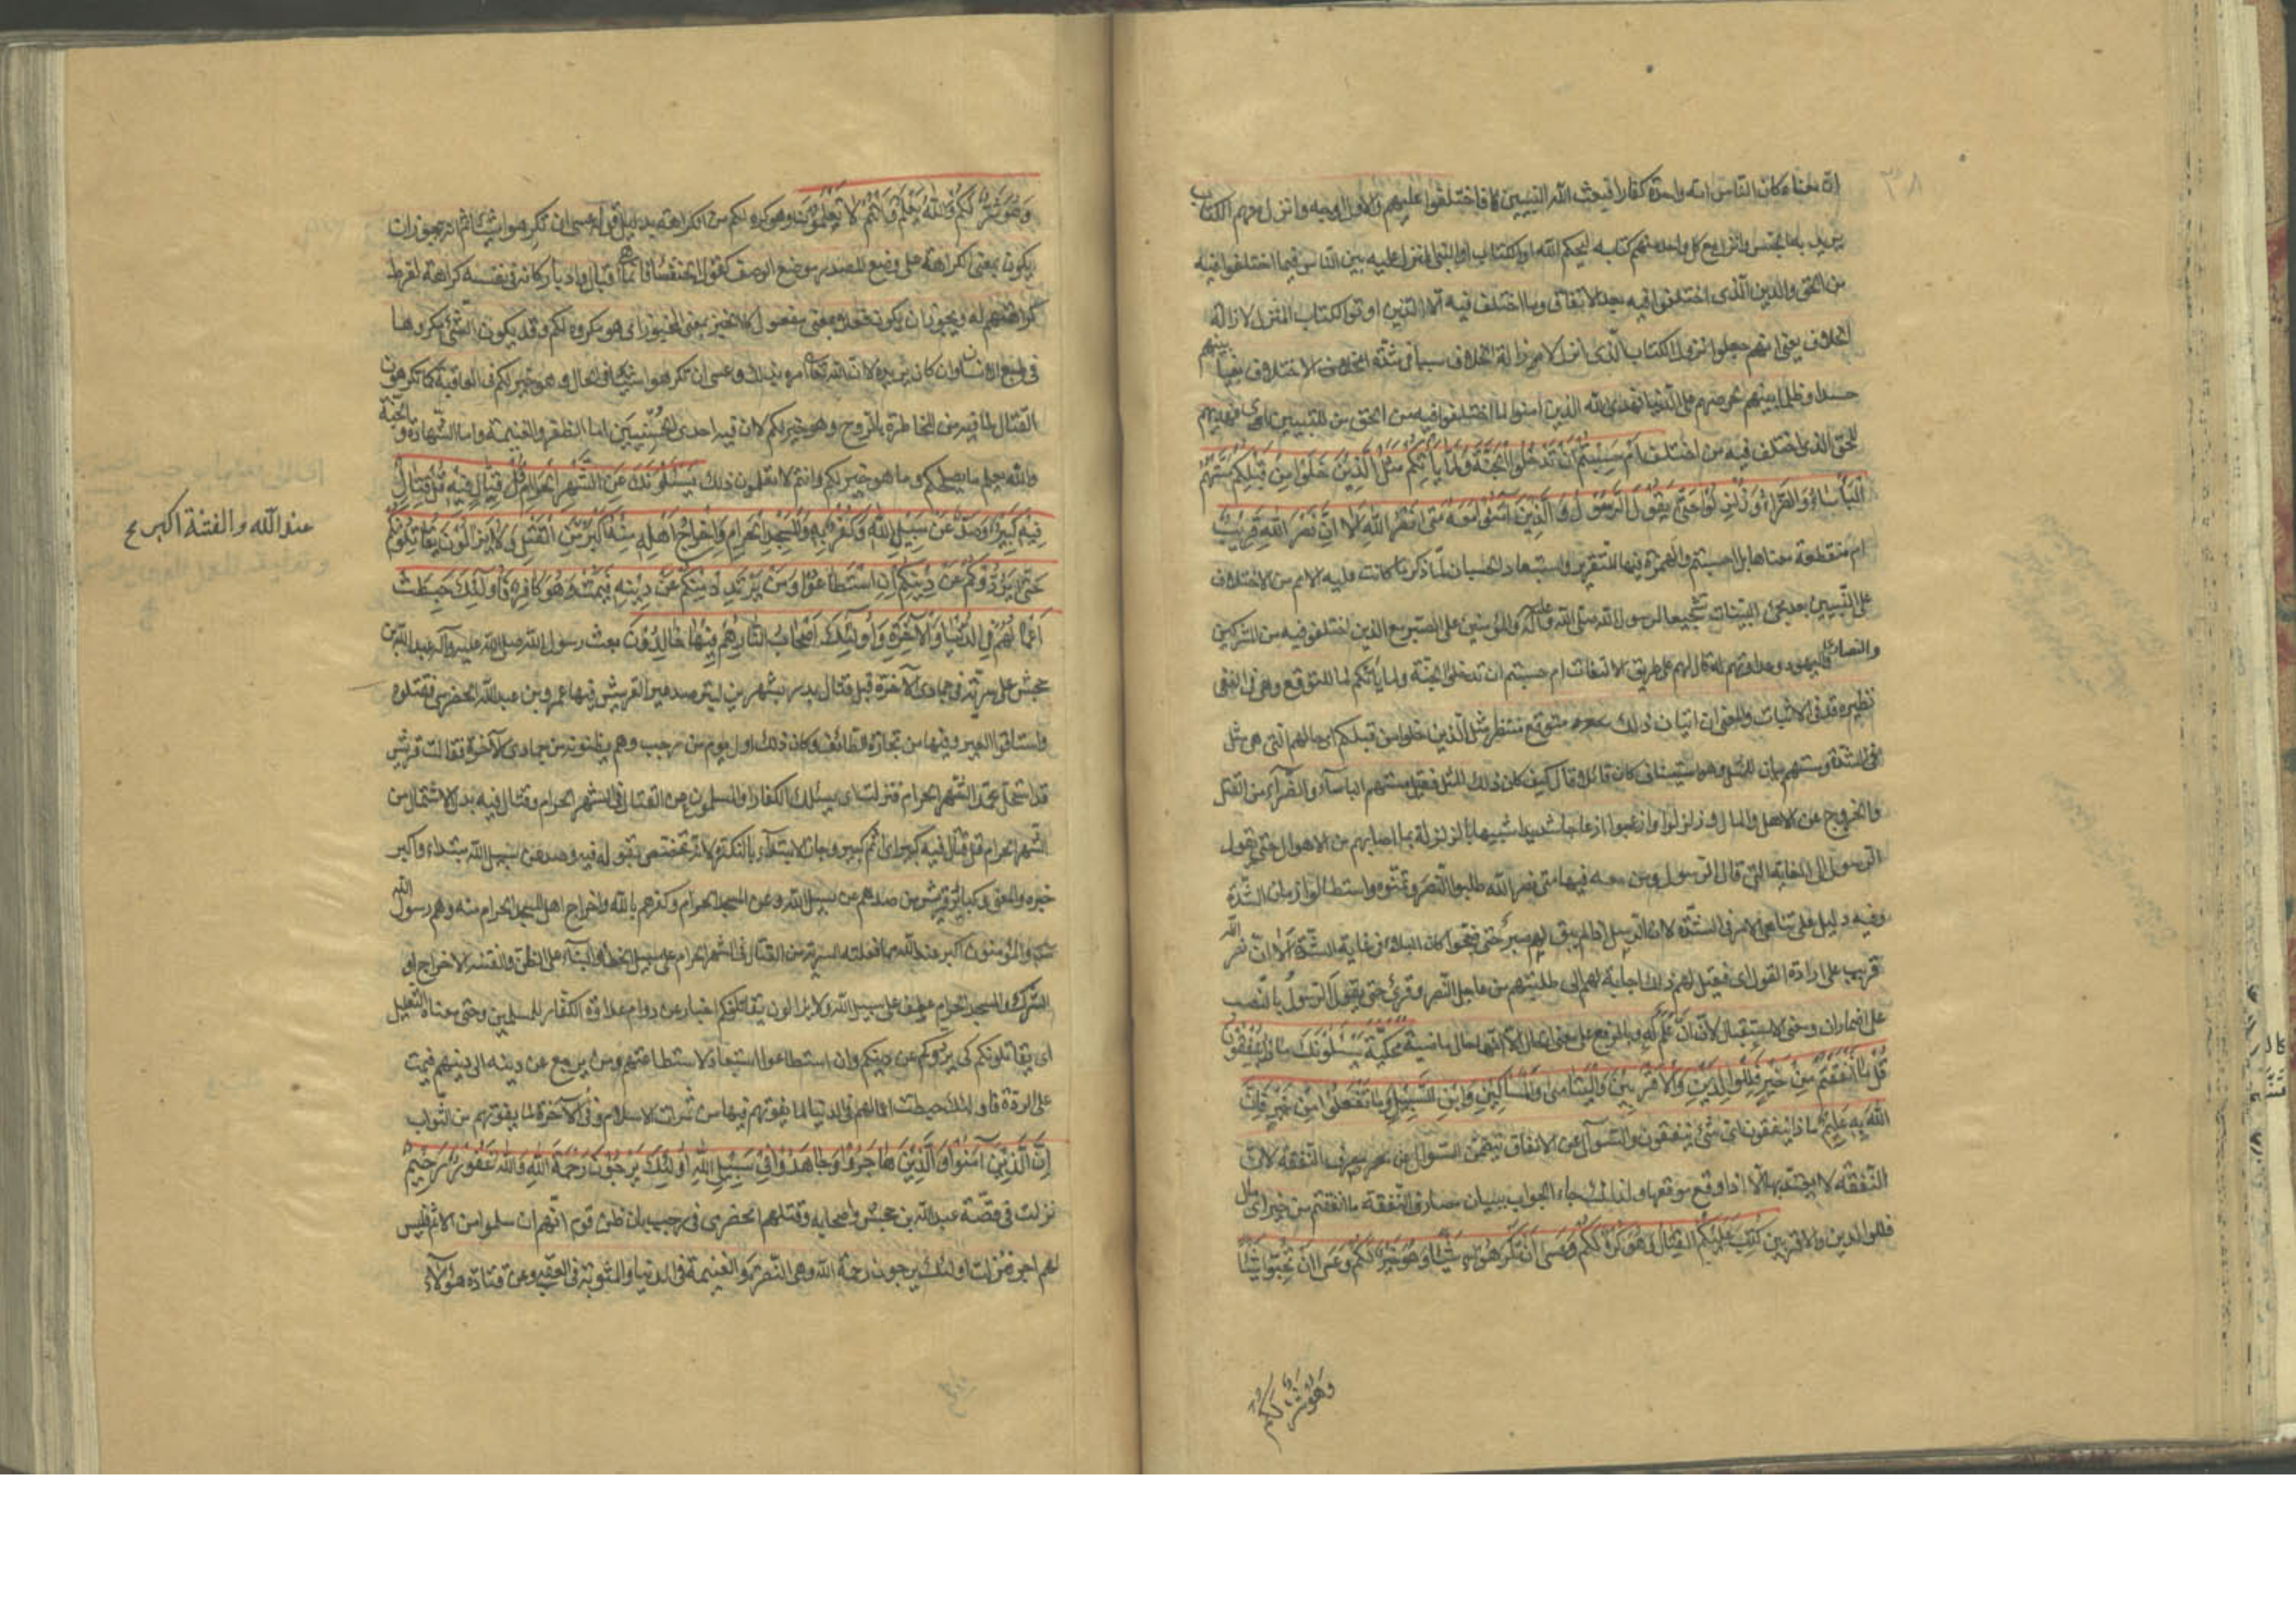 ان معناه كان الناس امة واحدة كفارا فبعث الله النبيين فاختلفوا عليهم والاول الوجه وانزل معهم الكتاب
يريد به الجنس وانزل مع كل واحد منهم كتابه ليحكم الله او الكتاب او النبي المنزل عليه بين الناس فيما اختلفوا فيه
من الحق والدين الذى اختلفوا فيه بعد الاتفاق وما اختلف فيه الا الذين اوتوا الكتاب المنزل لازالة
الخلاف يعنى انهم جعلوا نزول الكتاب الذى انزل لازالة الخلاف سببا فى شدة الخلاف الاختلاف بغيا بينهم
حسدا وظلما بينهم لحرصهم على الدنيا فهدى الله الذين امنوا لما اختلفوا فيه من الحق من للتبيين اى فهديهم
للحق الذى اختلف فيه من اختلف اَمْ حَسِبْتُمْ اَنْ تَدْخُلُوا الْجَنَّةَ وَلَمَّا يَأْتِكُمْ مَثَلُ الَّذِينَ خَلَوْا مِنْ قَبْلِكُمْ مَسَّتْهُمُ
الْبَأْسَاءُ وَالضَّرَّاءُ وَزُلْزِلُوا حَتَّى يَقُولَ الرَّسُولُ وَالَّذِينَ آمَنُوا مَعَهُ مَتَى نَصْرُ اللهِ اَلَا اِنَّ نَصْرَ اللهِ قَرِيبٌ
ام منقطعة معناها بل احسبتم والهمزة فيها للتقرير واستبعاد الحسبان لما ذكر ما كانت عليه الامم من الاختلاف
على النبيين بعد مجئ البينات تشجيعا لرسول الله صلى الله عليه وآله والمؤمنين على الصبر مع الذين اختلفوا فيه من المشركين
والنصارى واليهود وعداوتهم له قال لهم على طريق الالتفات ام حسبتم ان تدخلوا الجنة ولما يأتكم لما للتوقع وهى فى النفى
نظيرة قد فى الاثبات والمعنى ان اتيان ذلك متوقع منتظر مثل الذين خلوا من قبلكم اى حالهم التى هى مثل
فى الشدة ومستهم بيان للمثل وهو استيناف كان قائلا قال كيف كان ذلك المثل فقيل مستهم البأساء والضراء من القتل
والخروج عن الاهل والمال وزلزلوا وازعجوا ازعاجا شديدا شبيها بالزلزلة بما اصابهم من الاهوال حتى يقول
الرسول الى الغاية التى قال الرسول ومن معه فيها متى نصر الله طلبوا النصر وتمنوه واستطالوا زمان الشدة
وفيه دليل على تناهى الامر فى الشدة لان الرسل اذا لم يبق لهم صبر حتى ضجوا كان البلاء فى غاية الشدة الا ان نصر الله
قريب على ارادة القول اى فقيل لهم ذلك اجابة لهم الى طلبتهم من عاجل النصر وقرئ حتى يقول الرسول بالنصب
على اضمار ان ومعنى الاستقبال لان ان عَلَم له وبالرفع على معنى الحال الا انها حال ماضية محكية يَسْئَلُونَكَ مَاذَا يُنْفِقُونَ
قُلْ مَا اَنْفَقْتُمْ مِنْ خَيْرٍ فَلِلْوَالِدَيْنِ وَالْاَقْرَبِينَ وَالْيَتَامَى وَالْمَسَاكِينِ وَابْنِ السَّبِيلِ وَمَا تَفْعَلُوا مِنْ خَيْرٍ فَاِنَّ
اللهَ بِهِ عَلِيمٌ ماذا ينفقون اى شئ ينفقون والسؤال عن الانفاق يتضمن السؤال عن مصرف النفقة لان
النفقة لا يعتد بها الا اذا وقع موقعها ولذلك جاء الجواب ببيان مصارف النفقة ما انفقتم من خير اى مال
فللوالدين والاقربين كُتِبَ عَلَيْكُمُ الْقِتَالُ وَهُوَ كُرْهٌ لَكُمْ وَعَسَى اَنْ تَكْرَهُوا شَيْئًا وَهُوَ خَيْرٌ لَكُمْ وَعَسَى اَنْ تُحِبُّوا شَيْئًا
وَهُوَ شَرٌّ لَكُمْ
وَهُوَ شَرٌّ لَكُمْ وَاللهُ يَعْلَمُ وَاَنْتُمْ لَا تَعْلَمُونَ وهو كره لكم من الكراهة بدليل قوله عسى ان تكرهوا شيئا ثم انه يجوز ان
يكون بمعنى الكراهة على وضع المصدر موضع الوصف كقول الخنساء فانما هى اقبال وادبار كانه فى نفسه كراهة لفرط
كراهتهم له ويجوز ان يكون فعلا بمعنى مفعول كالخبز بمعنى المخبوز اى هو مكروه لكم وقد يكون الشئ مكروها
فى طبع الانسان وان كان يريده لان الله تعالى امره بذلك وعسى ان تكرهوا شيئا فى الحال وهو خير لكم فى العاقبة كما تكرهون
القتال لما فيه من المخاطرة بالروح وهو خير لكم لان فيه احدى الحسنيين اما الظفر والغنيمة واما الشهادة والجنة
والله يعلم ما يصلحكم وما هو خير لكم وانتم لا تعلمون ذلك يَسْئَلُونَكَ عَنِ الشَّهْرِ الْحَرَامِ قِتَالٍ فِيهِ قُلْ قِتَالٌ
فِيهِ كَبِيرٌ وَصَدٌّ عَنْ سَبِيلِ اللهِ وَكُفْرٌ بِهِ وَالْمَسْجِدِ الْحَرَامِ وَاِخْرَاجُ اَهْلِهِ مِنْهُ اَكْبَرُ مِنَ الْقَتْلِ وَلَا يَزَالُونَ يُقَاتِلُونَكُمْ
عند الله والفتنة اكبر
حَتَّى يَرُدُّوكُمْ عَنْ دِينِكُمْ اِنِ اسْتَطَاعُوا وَمَنْ يَرْتَدِدْ مِنْكُمْ عَنْ دِينِهِ فَيَمُتْ وَهُوَ كَافِرٌ فَاُولَئِكَ حَبِطَتْ
اَعْمَالُهُمْ فِي الدُّنْيَا وَالْآخِرَةِ وَاُولَئِكَ اَصْحَابُ النَّارِ هُمْ فِيهَا خَالِدُونَ بعث رسول الله صلى الله عليه وآله عبد الله بن
جحش على سرية فى جمادى الآخرة قبل قتال بدر بشهرين ليترصد عير القريش فيها عمرو بن عبد الله الحضرمى فقتلوه
واستاقوا العير وفيها من تجارة الطائف وكان ذلك اول يوم من رجب وهم يظنونه من جمادى الآخرة فقالت قريش
قد استحل محمد الشهر الحرام فنزلت اى يسئلك الكفار او المسلمون عن القتال فى الشهر الحرام وقتال فيه بدل الاشتمال من
الشهر الحرام قل قتال فيه كبير اى اثم كبير وجاز الابتداء بالنكرة لانه تخصص بقوله فيه وصد عن سبيل الله مبتداء واكبر
خبره والمعنى وكبائر قريش من صدهم عن سبيل الله وعن المسجد الحرام وكفرهم بالله واخراج اهل المسجد الحرام منه وهم رسول الله
والمؤمنون اكبر عند الله مما فعلته السرية من القتال فى الشهر الحرام على سبيل الخطأ والبناء على الظن والفتنة الاخراج او
الشرك والمسجد الحرام عطف على سبيل الله ولا يزالون يقاتلونكم اخبار عن دوام عداوة الكفار للمسلمين وحتى معناه التعليل
اى يقاتلونكم كى يردوكم عن دينكم وان استطاعوا استبعاد لاستطاعتهم ومن يرجع عن دينه الى دينهم فيمت
على الردة فاولئك حبطت اعمالهم فى الدنيا لما يفوتهم فيها من ثمرات الاسلام وفى الآخرة لما يفوتهم من الثواب
اِنَّ الَّذِينَ آمَنُوا وَالَّذِينَ هَاجَرُوا وَجَاهَدُوا فِي سَبِيلِ اللهِ اُولَئِكَ يَرْجُونَ رَحْمَةَ اللهِ وَاللهُ غَفُورٌ رَحِيمٌ
نزلت فى قصة عبد الله بن جحش واصحابه وقتلهم الحضرمى فى رجب بان ظن قوم انهم ان سلموا من الاثم فليس
لهم اجر فنزلت اولئك يرجون رحمة الله وهى النصرة والغنيمة فى الدنيا والمثوبة فى العقبى وعن قتادة هؤلاء